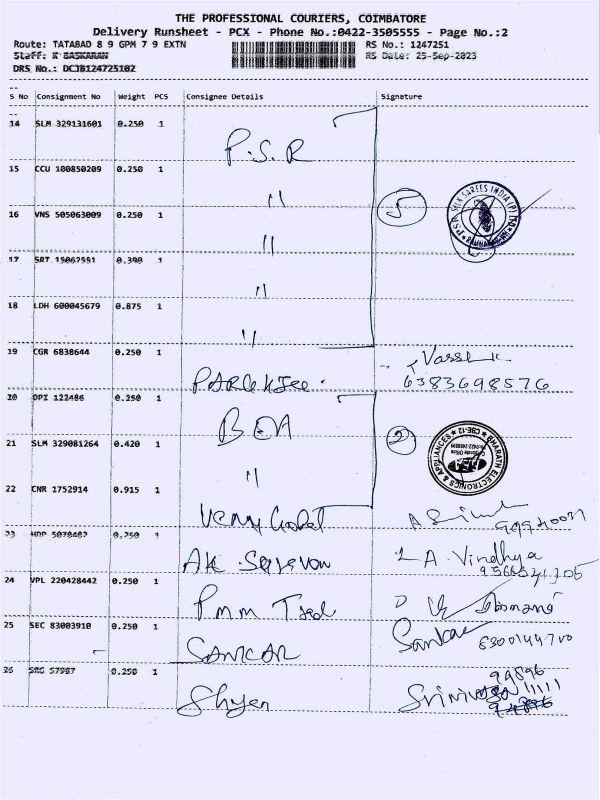 THE PROFESSIONAL COURIERS, COIMBATORE
Delivery Runsheet - PCX - Phone No.:0422-3505555 - Page No.:2
Route: TATABAD 8 9 GPM 7 9 EXTN
RS No.: 1247251
Staff: K BASKARAN
RS Date: 25-Sep-2023
DRS No.: DCJB124725102
S No Consignment No Weight PCS Consignee Details Signature
14 SLM 329131601 0.250 1 P.S.R
15 CCU 100850209 0.250 1 "
5
16 VNS 505063009 0.250 1 "
P.S.R SILK SAREES INDIA (P) LTD
17 SRT 0.390 1 "
18 LDH 600045679 0.875 1 "
19 CGR 6838644 0.250 1
6383698576
20 DPI 122486 0.250 1
2
21 SLM 329081264 0.420 1 "
BHARATH ELECTRONICS & APPLIANCES
CBE-12
Corporate Office
22 CNR 1752914 0.915 1
23 HDP 5078482 0.250 1 AK
A. Vindhya
24 VPL 220428442 0.250 1 Pmm
25 SEC 83003910 0.250 1 SANKAR
Sankar
26 57987 0.250 1 Shyam
99896
11111